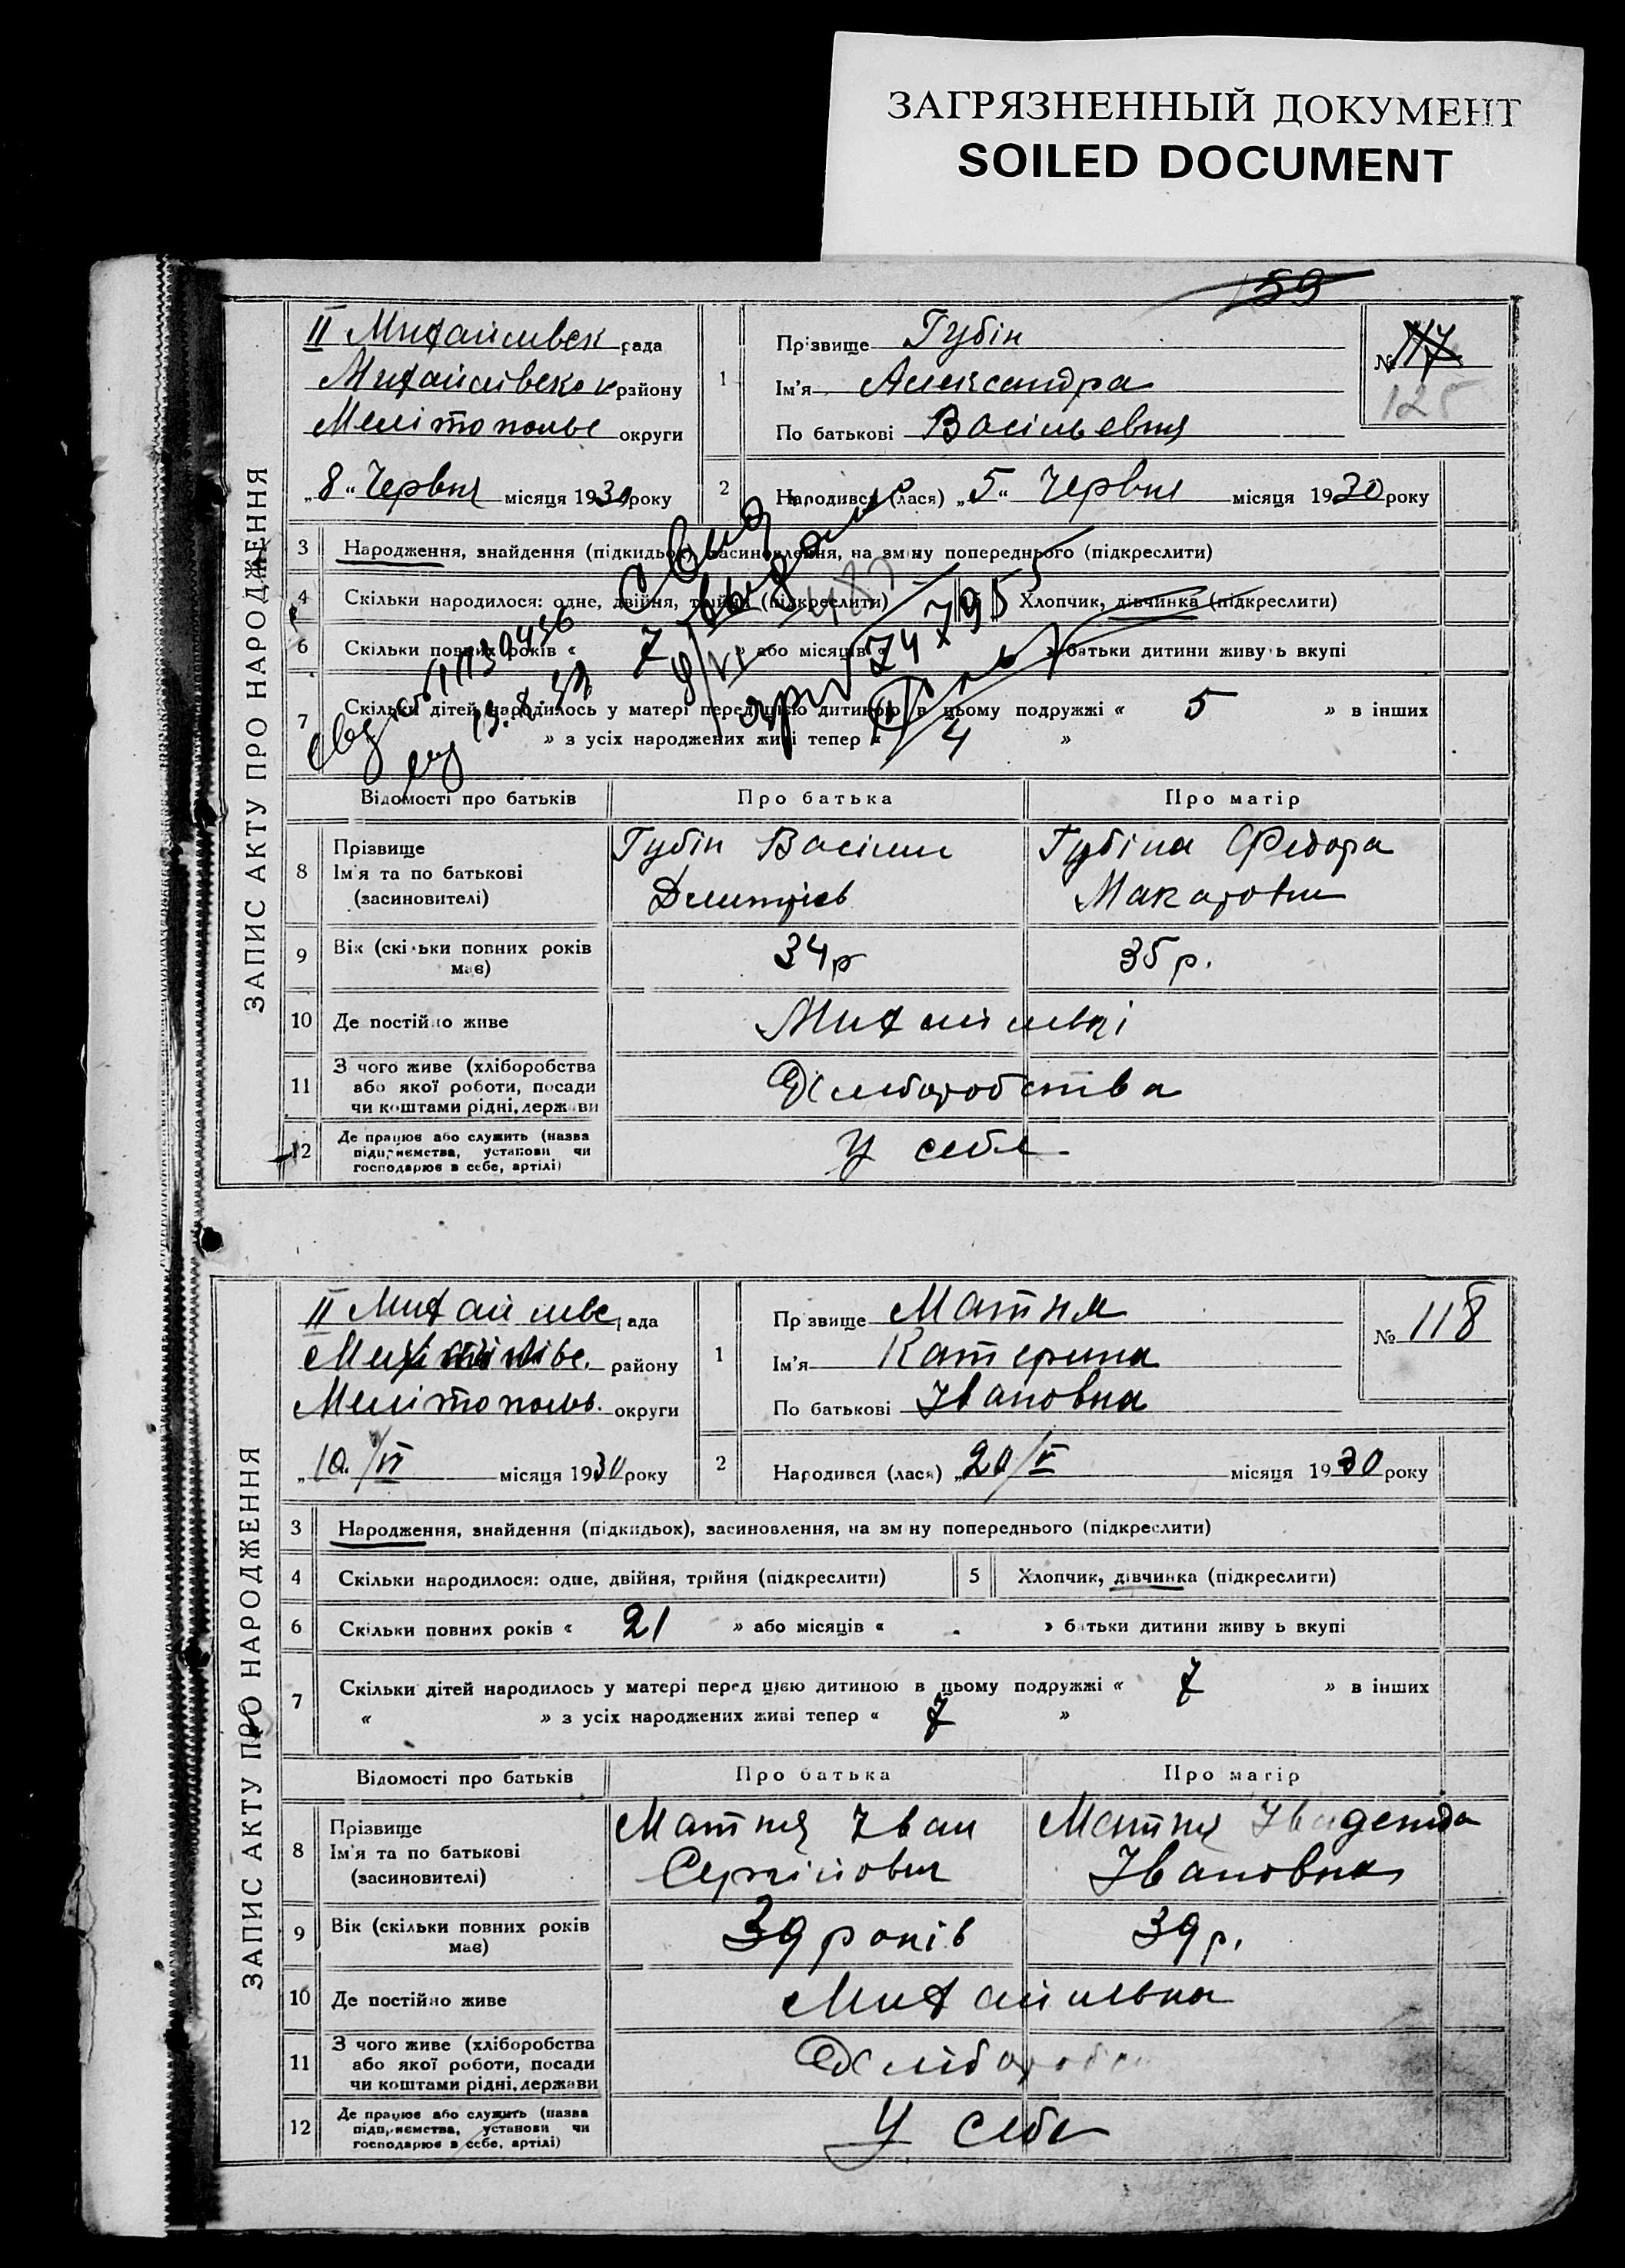 ЗАГРЯЗНЕННЫЙ ДОКУМЕНТ
SOILED DOCUMENT
159
ЗАПИС АКТУ ПРО НАРОДЖЕННЯ
II Михайлівск рада
Михайлівско району
Мелітополье округи
„8“ Червня місяця 1930 року
1
Прізвище Губін
Ім'я Александра
По батькові Васільевня
№ 117
125
2
Народився (лася) „5“ Червня місяця 1930 року
3 Народження, знайдення (підкидьок), засиновлення, на зміну попереднього (підкреслити)
4 Скільки народилося: одне, двійня, трійня (підкреслити) Хлопчик, дівчинка (підкреслити)
6 Скільки повних років « 7 » або місяців « » батьки дитини живуть вкупі
7 Скільки дітей народилось у матері перед цією дитиною в цьому подружжі « 5 » в інших
» з усіх народжених живі тепер « 4 »
Відомості про батьків Про батька Про матір
8 Прізвище Ім'я та по батькові (засиновителі)
Губін Васіли Дмитрієв
Губіна Федора Макаровна
9 Вік (скільки повних років має) 34 р 35 р.
10 Де постійно живе Михайлівкі
11 З чого живе (хліборобства або якої роботи, посади чи коштами рідні, держави Хлеборобства
12 Де працює або служить (назва підприємства, установи чи господарює в себе, артілі) У себе
ЗАПИС АКТУ ПРО НАРОДЖЕННЯ
II Михайлівс рада
Михайлівс. району
Мелітополь. округи
„10./VI місяця 1930 року
1
Прізвище Матня
Ім'я Катерина
По батькові Івановна
№ 118
2
Народився (лася) „20/V місяця 1930 року
3 Народження, знайдення (підкидьок), засиновлення, на зміну попереднього (підкреслити)
4 Скільки народилося: одне, двійня, трійня (підкреслити) 5 Хлопчик, дівчинка (підкреслити)
6 Скільки повних років « 21 » або місяців « - » батьки дитини живуть вкупі
7 Скільки дітей народилось у матері перед цією дитиною в цьому подружжі « 7 » в інших
« » з усіх народжених живі тепер « 7 »
Відомості про батьків Про батька Про матір
8 Прізвище Ім'я та по батькові (засиновителі)
Матня Іван Сергійович
Матня Івановна
9 Вік (скільки повних років має) 39 років 39 р.
10 Де постійно живе Михайлівка
11 З чого живе (хліборобства або якої роботи, посади чи коштами рідні, держави Хлібороб
12 Де працює або служить (назва підприємства, установи чи господарює в себе, артілі) У себе